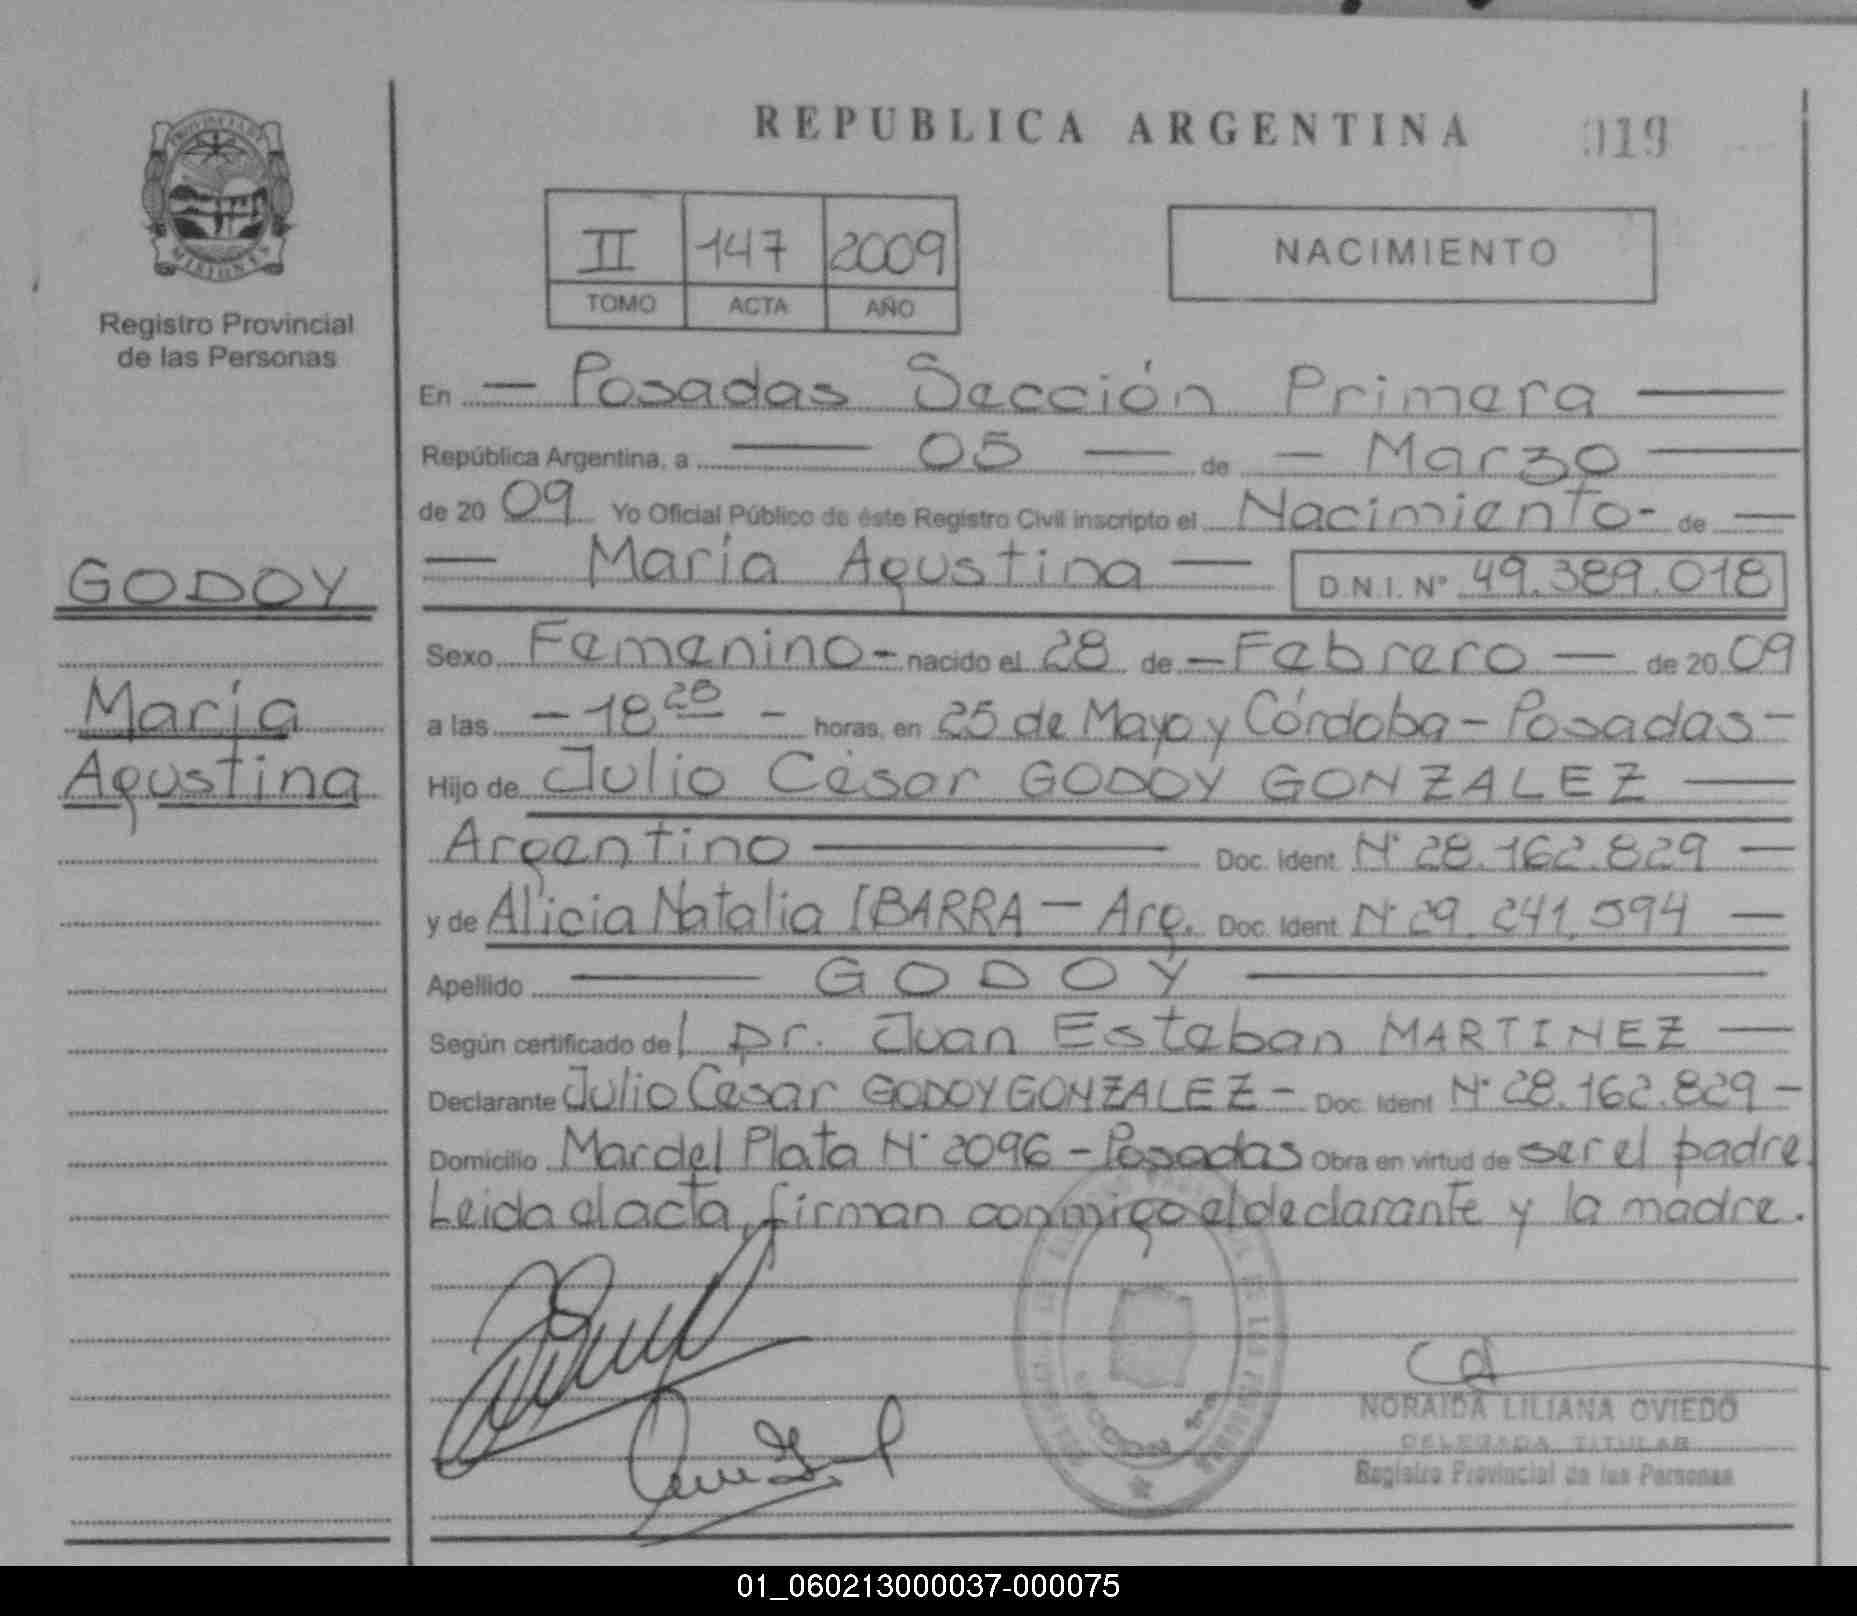 REPUBLICA ARGENTINA 019
PROVINCIA DE
MISIONES
Registro Provincial
de las Personas
II 147 2009
TOMO ACTA AÑO
NACIMIENTO
En — Posadas Sección Primera —
República Argentina, a — 05 — de — Marzo —
de 20 09 Yo Oficial Público de éste Registro Civil inscripto el Nacimiento - de —
— María Agustina — D.N.I. Nº 49.389.018
GODOY
María
Agustina
Sexo Femenino - nacido el 28 de — Febrero — de 20 09
a las — 18 28 — horas, en 25 de Mayo y Córdoba - Posadas -
Hijo de Julio César GODOY GONZALEZ —
Argentino — Doc. Ident. Nº 28.162.829 —
y de Alicia Natalia IBARRA — Arg. Doc. Ident. Nº 29.241.594 —
Apellido — GODOY —
Según certificado del Dr. Juan Esteban MARTINEZ —
Declarante Julio César GODOY GONZALEZ - Doc. Ident. Nº 28.162.829 -
Domicilio Mar del Plata Nº 2096 - Posadas Obra en virtud de ser el padre.
Leida el acta, firman conmigo el declarante y la madre.
NORAIDA LILIANA OVIEDO
DELEGADA TITULAR
Registro Provincial de las Personas
01_060213000037-000075